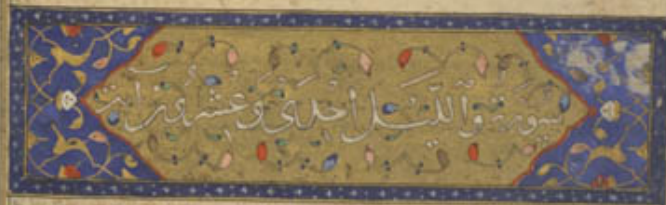 سورة والليل احدی وعشرون آية